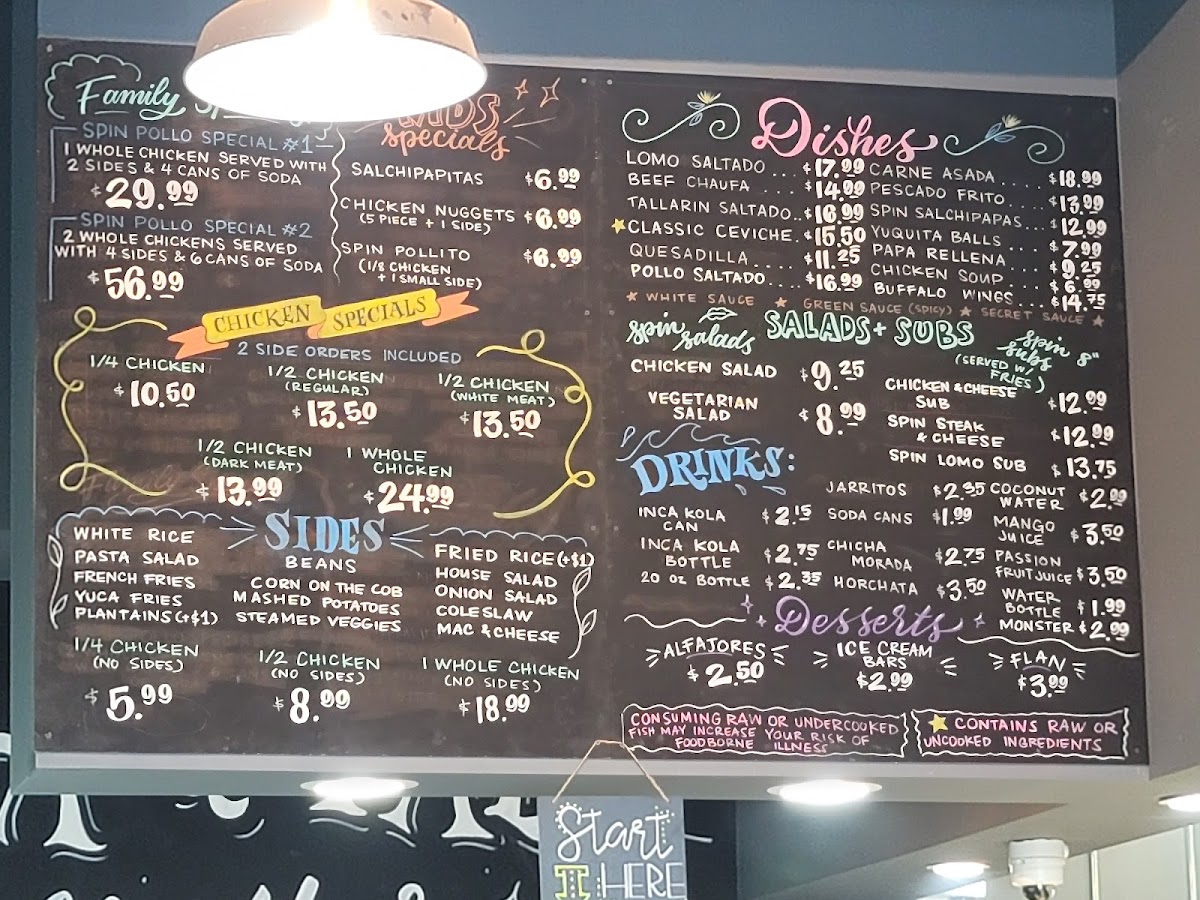 Family
SPIN POLLO SPECIAL #1
1 WHOLE CHICKEN SERVED WITH
2 SIDES & 4 CANS OF SODA
$29.99
SPIN POLLO SPECIAL #2
2 WHOLE CHICKENS SERVED
WITH 4 SIDES & 6 CANS OF SODA
$56.99
KIDS
specials
SALCHIPAPITAS $6.99
CHICKEN NUGGETS $6.99
(5 PIECE + 1 SIDE)
SPIN POLLITO $6.99
(1/8 CHICKEN
+ 1 SMALL SIDE)
CHICKEN SPECIALS
2 SIDE ORDERS INCLUDED
1/4 CHICKEN
$10.50
1/2 CHICKEN
(REGULAR)
$13.50
1/2 CHICKEN
(WHITE MEAT)
$13.50
1/2 CHICKEN
(DARK MEAT)
$13.99
1 WHOLE
CHICKEN
$24.99
SIDES
WHITE RICE
PASTA SALAD
FRENCH FRIES
YUCA FRIES
PLANTAINS (+$1)
BEANS
CORN ON THE COB
MASHED POTATOES
STEAMED VEGGIES
FRIED RICE (+$1)
HOUSE SALAD
ONION SALAD
COLESLAW
MAC & CHEESE
1/4 CHICKEN
(NO SIDES)
$5.99
1/2 CHICKEN
(NO SIDES)
$8.99
1 WHOLE CHICKEN
(NO SIDES)
$18.99
Dishes
LOMO SALTADO .. $17.99
BEEF CHAUFA .... $14.99
TALLARIN SALTADO.. $16.99
CLASSIC CEVICHE. $15.50
QUESADILLA .... $11.25
POLLO SALTADO... $16.99
CARNE ASADA .... $18.99
PESCADO FRITO.... $13.99
SPIN SALCHIPAPAS... $12.99
YUQUITA BALLS ... $7.99
PAPA RELLENA .... $9.25
CHICKEN SOUP .... $6.99
BUFFALO WINGS... $14.75
WHITE SAUCE GREEN SAUCE (SPICY) SECRET SAUCE
SALADS + SUBS
spin salads
CHICKEN SALAD $9.25
VEGETARIAN
SALAD $8.99
spin subs 8"
(SERVED W/
FRIES)
CHICKEN & CHEESE
SUB $12.99
SPIN STEAK
& CHEESE $12.99
SPIN LOMO SUB $13.75
DRINKS:
INCA KOLA
CAN $2.15
INCA KOLA
BOTTLE $2.75
20 OZ BOTTLE $2.35
JARRITOS $2.35
SODA CANS $1.99
CHICHA
MORADA $2.75
HORCHATA $3.50
COCONUT
WATER $2.99
MANGO
JUICE $3.50
PASSION
FRUIT JUICE $3.50
WATER
BOTTLE $1.99
MONSTER $2.99
Desserts
ALFAJORES
$2.50
ICE CREAM
BARS
$2.99
FLAN
$3.99
CONSUMING RAW OR UNDERCOOKED
FISH MAY INCREASE YOUR RISK OF
FOODBORNE ILLNESS
CONTAINS RAW OR
UNCOOKED INGREDIENTS
Start
HERE